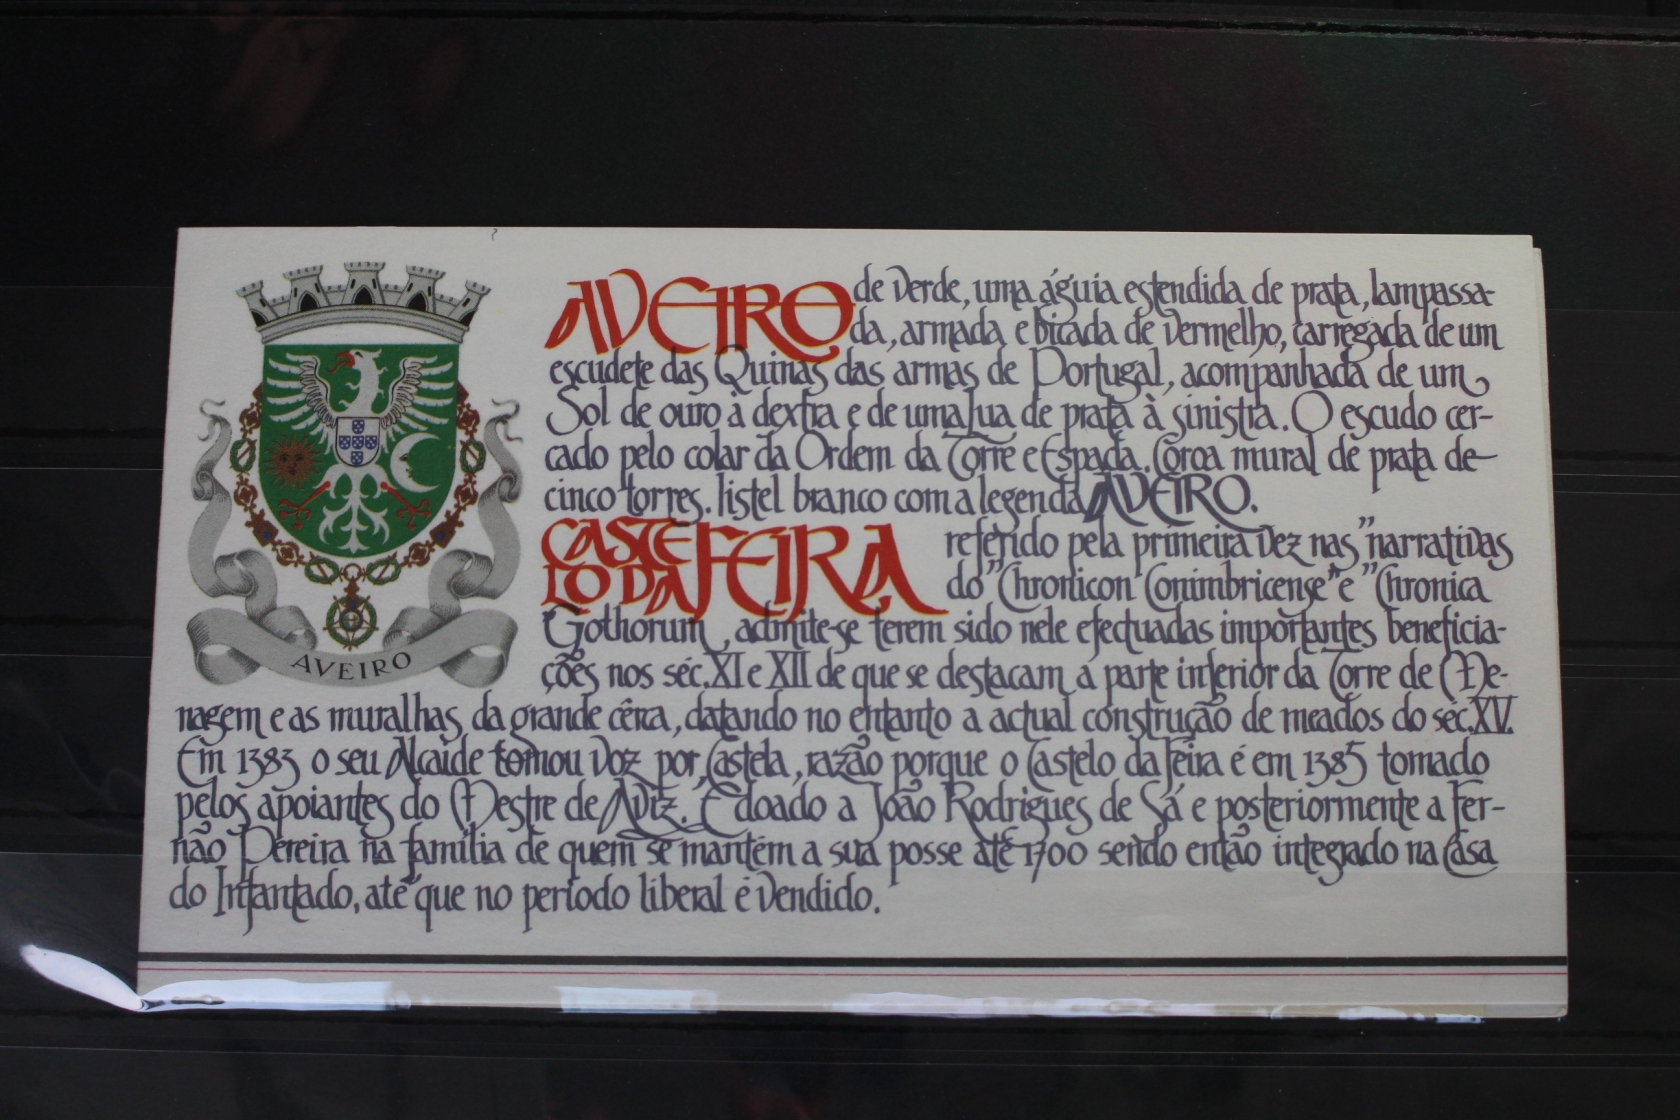 AVEIRO de verde, uma águia estendida de prata, lampassa-
da, armada e bicada de vermelho, carregada de um
escudete das Quinas das armas de Portugal, acompanhada de um
Sol de ouro à dextra e de uma Lua de prata à sinistra. O escudo cer-
cado pelo colar da Ordem da Torre e Espada. Coroa mural de prata de
cinco torres. listel branco com a legenda AVEIRO.
CASTELO DA FEIRA referido pela primeira vez nas "narrativas
do "Chronicon Conimbricense" e "Chronica
Gothorum, admite-se terem sido nele efectuadas importantes beneficia-
ções nos séc. XI e XII de que se destacam a parte inferior da Torre de Me-
nagem e as muralhas da grande cêrca, datando no entanto a actual construção de meados do séc. XV.
Em 1383 o seu Alcaide tomou voz por Castela, razão porque o Castelo da Feira é em 1385 tomado
pelos apoiantes do Mestre de Aviz. É doado a João Rodrigues de Sá e posteriormente a Fer-
não Pereira na família de quem se mantém a sua posse até 1700 sendo então integrado na Casa
do Infantado, até que no período liberal é vendido.
AVEIRO